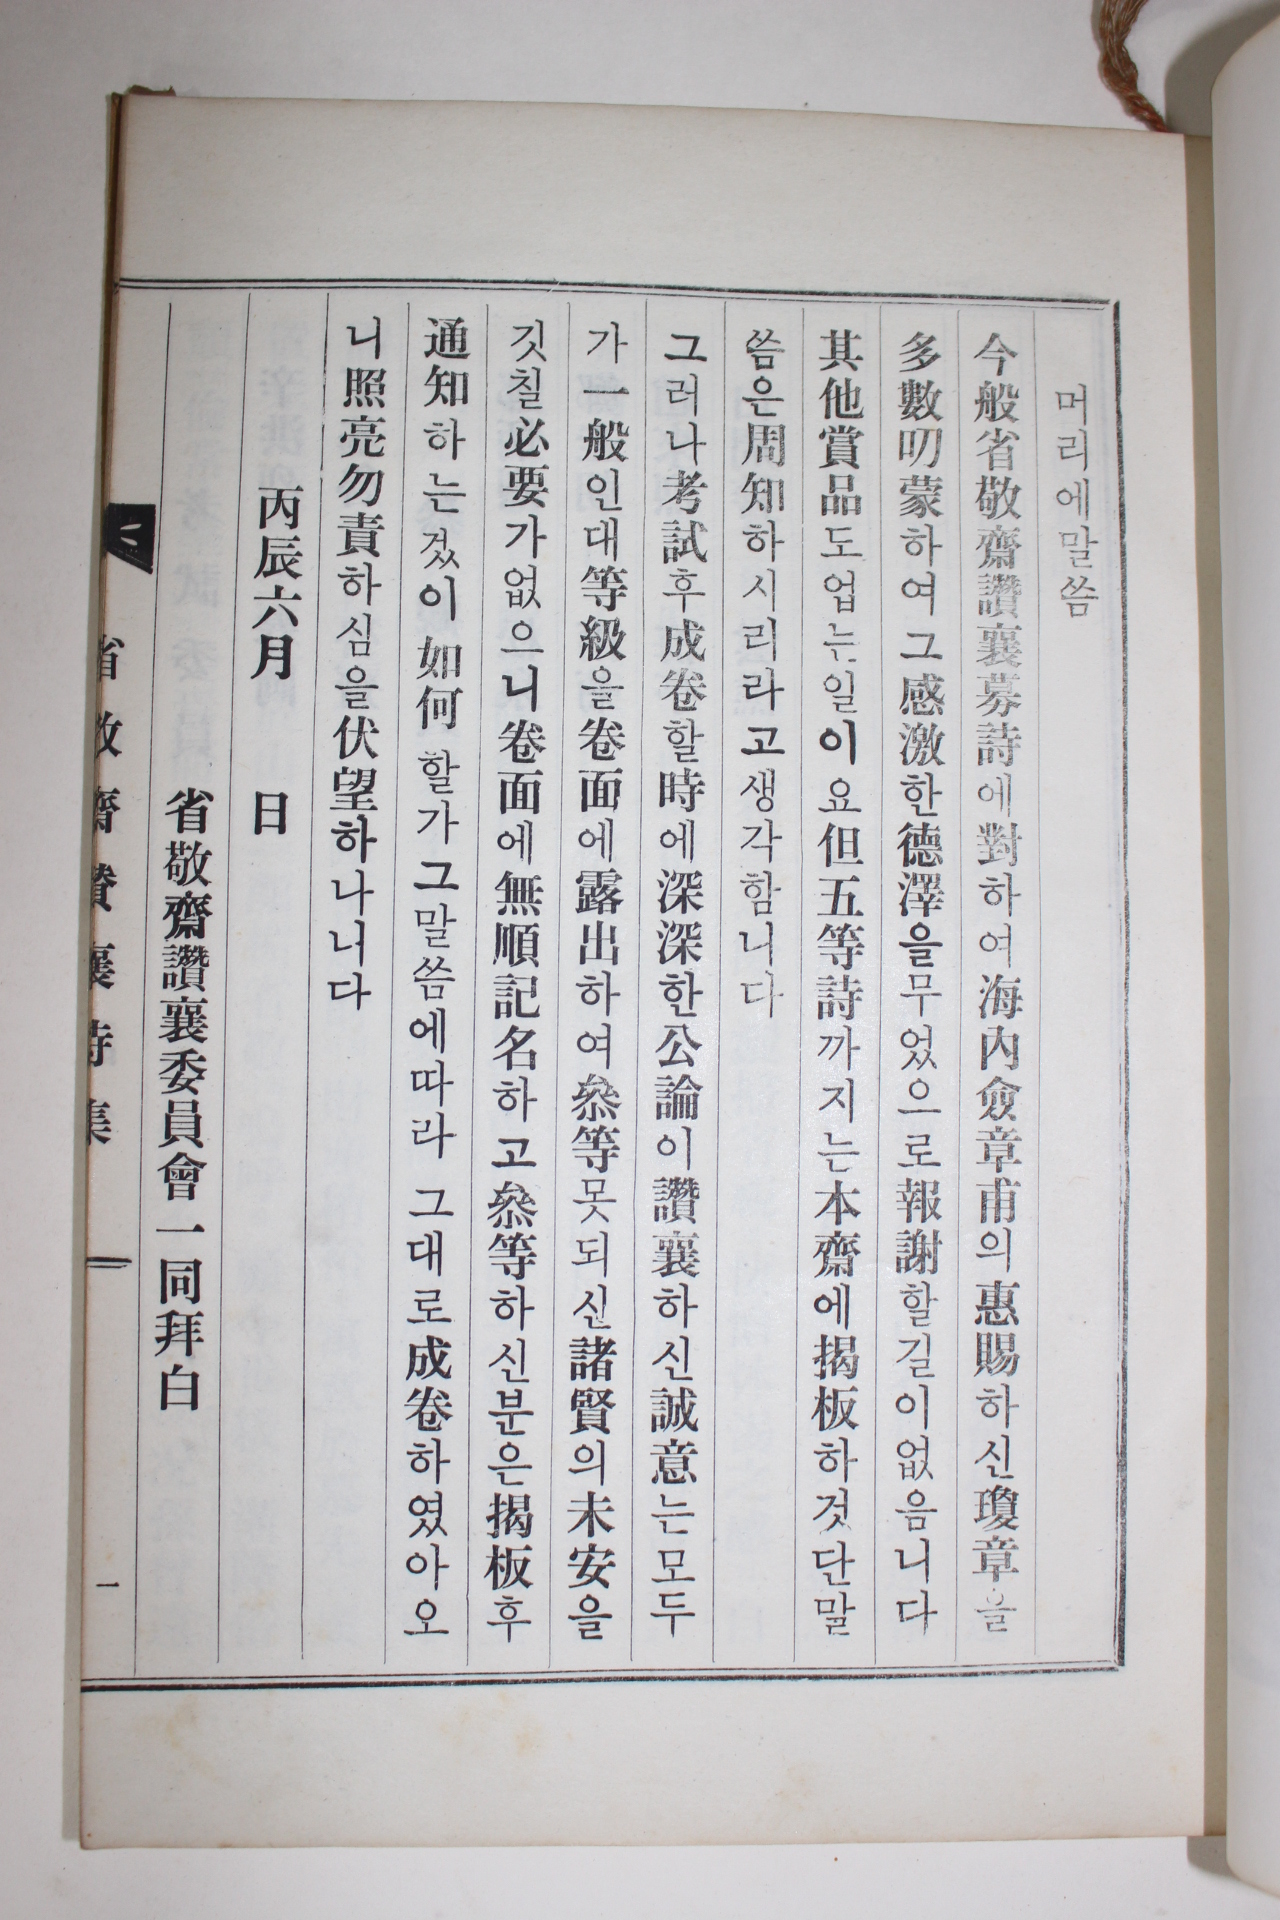 머리에말씀
今般省敬齋讚襄募詩에對하여海內僉章甫의惠賜하신瓊章을
多數叨蒙하여그感激한德澤을무었으로報謝할길이없음니다
其他賞品도업는일이요但五等詩까지는本齋에揭板하것단말
씀은周知하시리라고생각함니다
그러나考試후成卷할時에深深한公論이讚襄하신誠意는모두
가一般인대等級을卷面에露出하여叅等못되신諸賢의未安을
깃칠必要가없으니卷面에無順記名하고叅等하신분은揭板후
通知하는겄이如何할가그말씀에따라그대로成卷하였아오
니照亮勿責하심을伏望하나니다
丙辰六月 日
省敬齋讚襄委員會一同拜白
省敬齋贊襄詩集 一